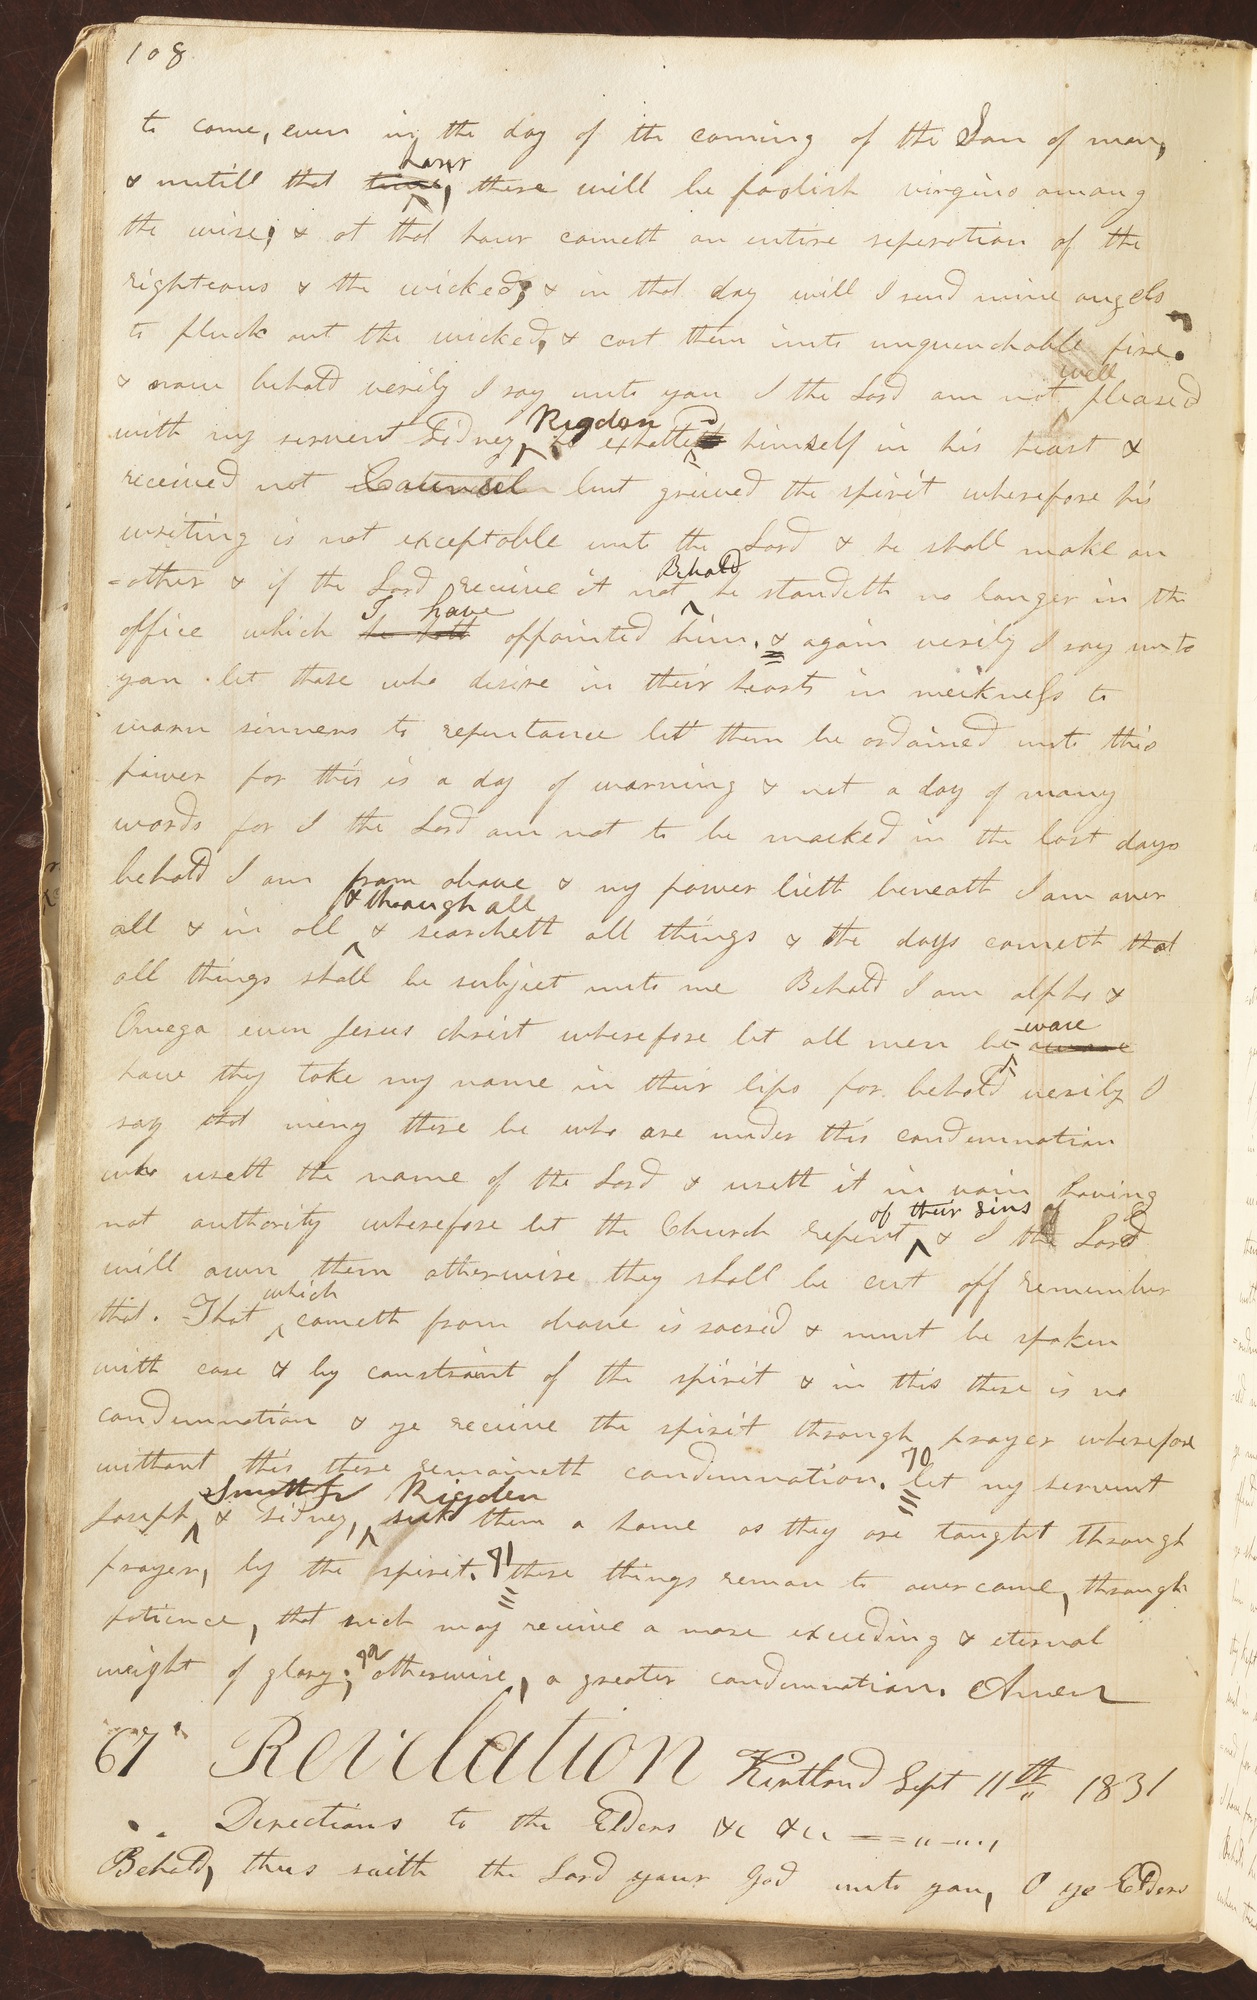 108
to come, even in the day of the coming of the Son of man,
hour
& untill that time, there will be foolish virgins among
the wise; & at that hour cometh an entire seperation of the
righteous & the wicked; & in that day will I send mine angels,
to pluck out the wicked, & cast them into unquenchable fire.
well
& now behold verily I say unto you I the Lord am not pleased
Rigdon
with my servent Sidney, he exalteth himself in his heart &
received not Counsel but grieved the spirit wherefore his
writing is not exceptable unto the Lord & he shall make an
Behold
=other & if the Lord receive it not he standeth no longer in the
I have
office which he hath appointed him. & again verily I say unto
you let those who desire in their hearts in meekness to
warn sinners to repentance let them be ordained unto this
power for this is a day of warning & not a day of many
words for I the Lord am not to be mocked in the last days
behold I am from above & my power lieth beneath I am over
& through all
all & in all & searcheth all things & the days cometh that
all things shall be subject unto me Behold I am alpha &
-ware
Omega even Jesus christ wherefore let all men be aware
how they take my name in their lips for behold verily I
say that meny there be who are under this condemnation
who useth the name of the Lord & useth it in vain having
of their sins
not authority wherefore let the Church repent & I the Lord
will own them otherwise they shall be cut off remember
which
that. That cometh from above is sacred & must be spoken
with care & by constraint of the spirit & in this there is no
condemnation & ye receive the spirit through prayer wherefore
70
without this there remaineth condemnation. let my servent
Smith Jr Rigden
Joseph & Sidney, seek them a home as they are taught through
71
prayer, by the spirit. these things reman to overcome, through
patience, that such may receive a more exceeding & eternal
weight of glory; otherwise, a greater condemnation. Amen
67 Revelation Kirtland Sept 11th 1831
Directions to the Elders &c &c
Behold, thus saith the Lord your God unto you, O ye Elders